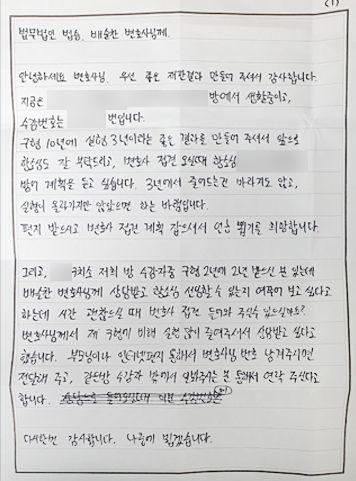 (1)
법무법인 법승, 배슬찬 변호사님께.
안녕하세요 변호사님. 우선 좋은 재판결과 만들어 주셔서 감사합니다.
지금은 방에서 생활중이고,
수감번호는 번입니다.
구형 10년에 실형 3년이라는 좋은 결과를 만들어 주셔서 앞으로
항소심도 잘 부탁드리고, 변호사 접견 오실때 항소심
방어 계획을 듣고 싶습니다. 3년에서 줄어드는건 바라지도 않고,
실형이 올라가지만 않았으면 하는 바램입니다.
편지 받으시고 변호사 접견 계획 잡으셔서 얼른 뵙기를 희망합니다.
그리고, 구치소 저희 방 수감자중 구형 2년에 2년 받으신 분 있는데
배슬찬 변호사님께 상담받고 항소심 선임할 수 있는지 여쭤 보고 싶다고
하는데 시간 괜찮으실 때 변호사 접견 들어와 주실수 있으실까요?
변호사님께서 제 구형에 비해 실형 많이 줄여주셔서 상담받고 싶다고
했습니다. 부모님이나 인터넷편지 통해서 변호사님 번호 남겨주시면
전달해 주고, 같은방 수감자 밖에서 봐주는 분 통해서 연락 주신다고
합니다.
다시한번 감사합니다. 나중에 뵙겠습니다.